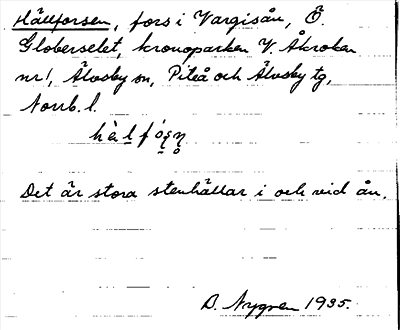 Hällforsen, fors i Vargisån, Ö.
Globerselet, kronoparken V. Åkroken
nr 1, Älvsby sn, Piteå och Älvsby tg,
Norrb. l.
Det är stora stenhällar i och vid ån.
B. Nygren 1935.